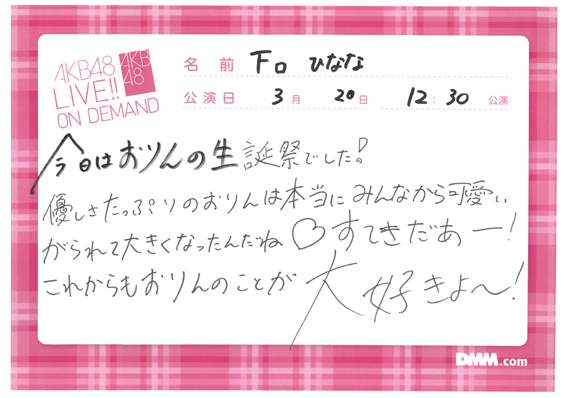 AKB48
LIVE!!
ON DEMAND
AKB
48
名前 下口 ひなな
公演日 3月 20日 12:30 公演
今日はおりんの生誕祭でした!
優しさたっぷりのおりんは本当にみんなから可愛い
がられて大きくなったんだね♡すてきだあー!
これからもおりんのことが大好きよ〜!
DMM.com